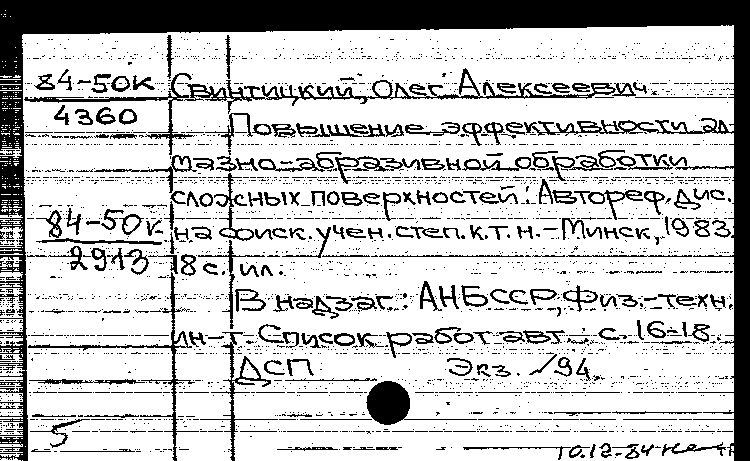 84-50к Свинтицкий, Олег Алексеевич.
4360 Повышение эффективности ал-
мазно-абразивной обработки
сложных поверхностей: Автореф. дис.
84-50к на соиск. учен. степ. к.т.н. - Минск, 1983.
2913 18 с., ил.
В надзаг.: АН БССР, Физ.-техн.
ин-т. Список работ авт.: с. 16-18.
ДСП Экз. №94
5
10.12.84